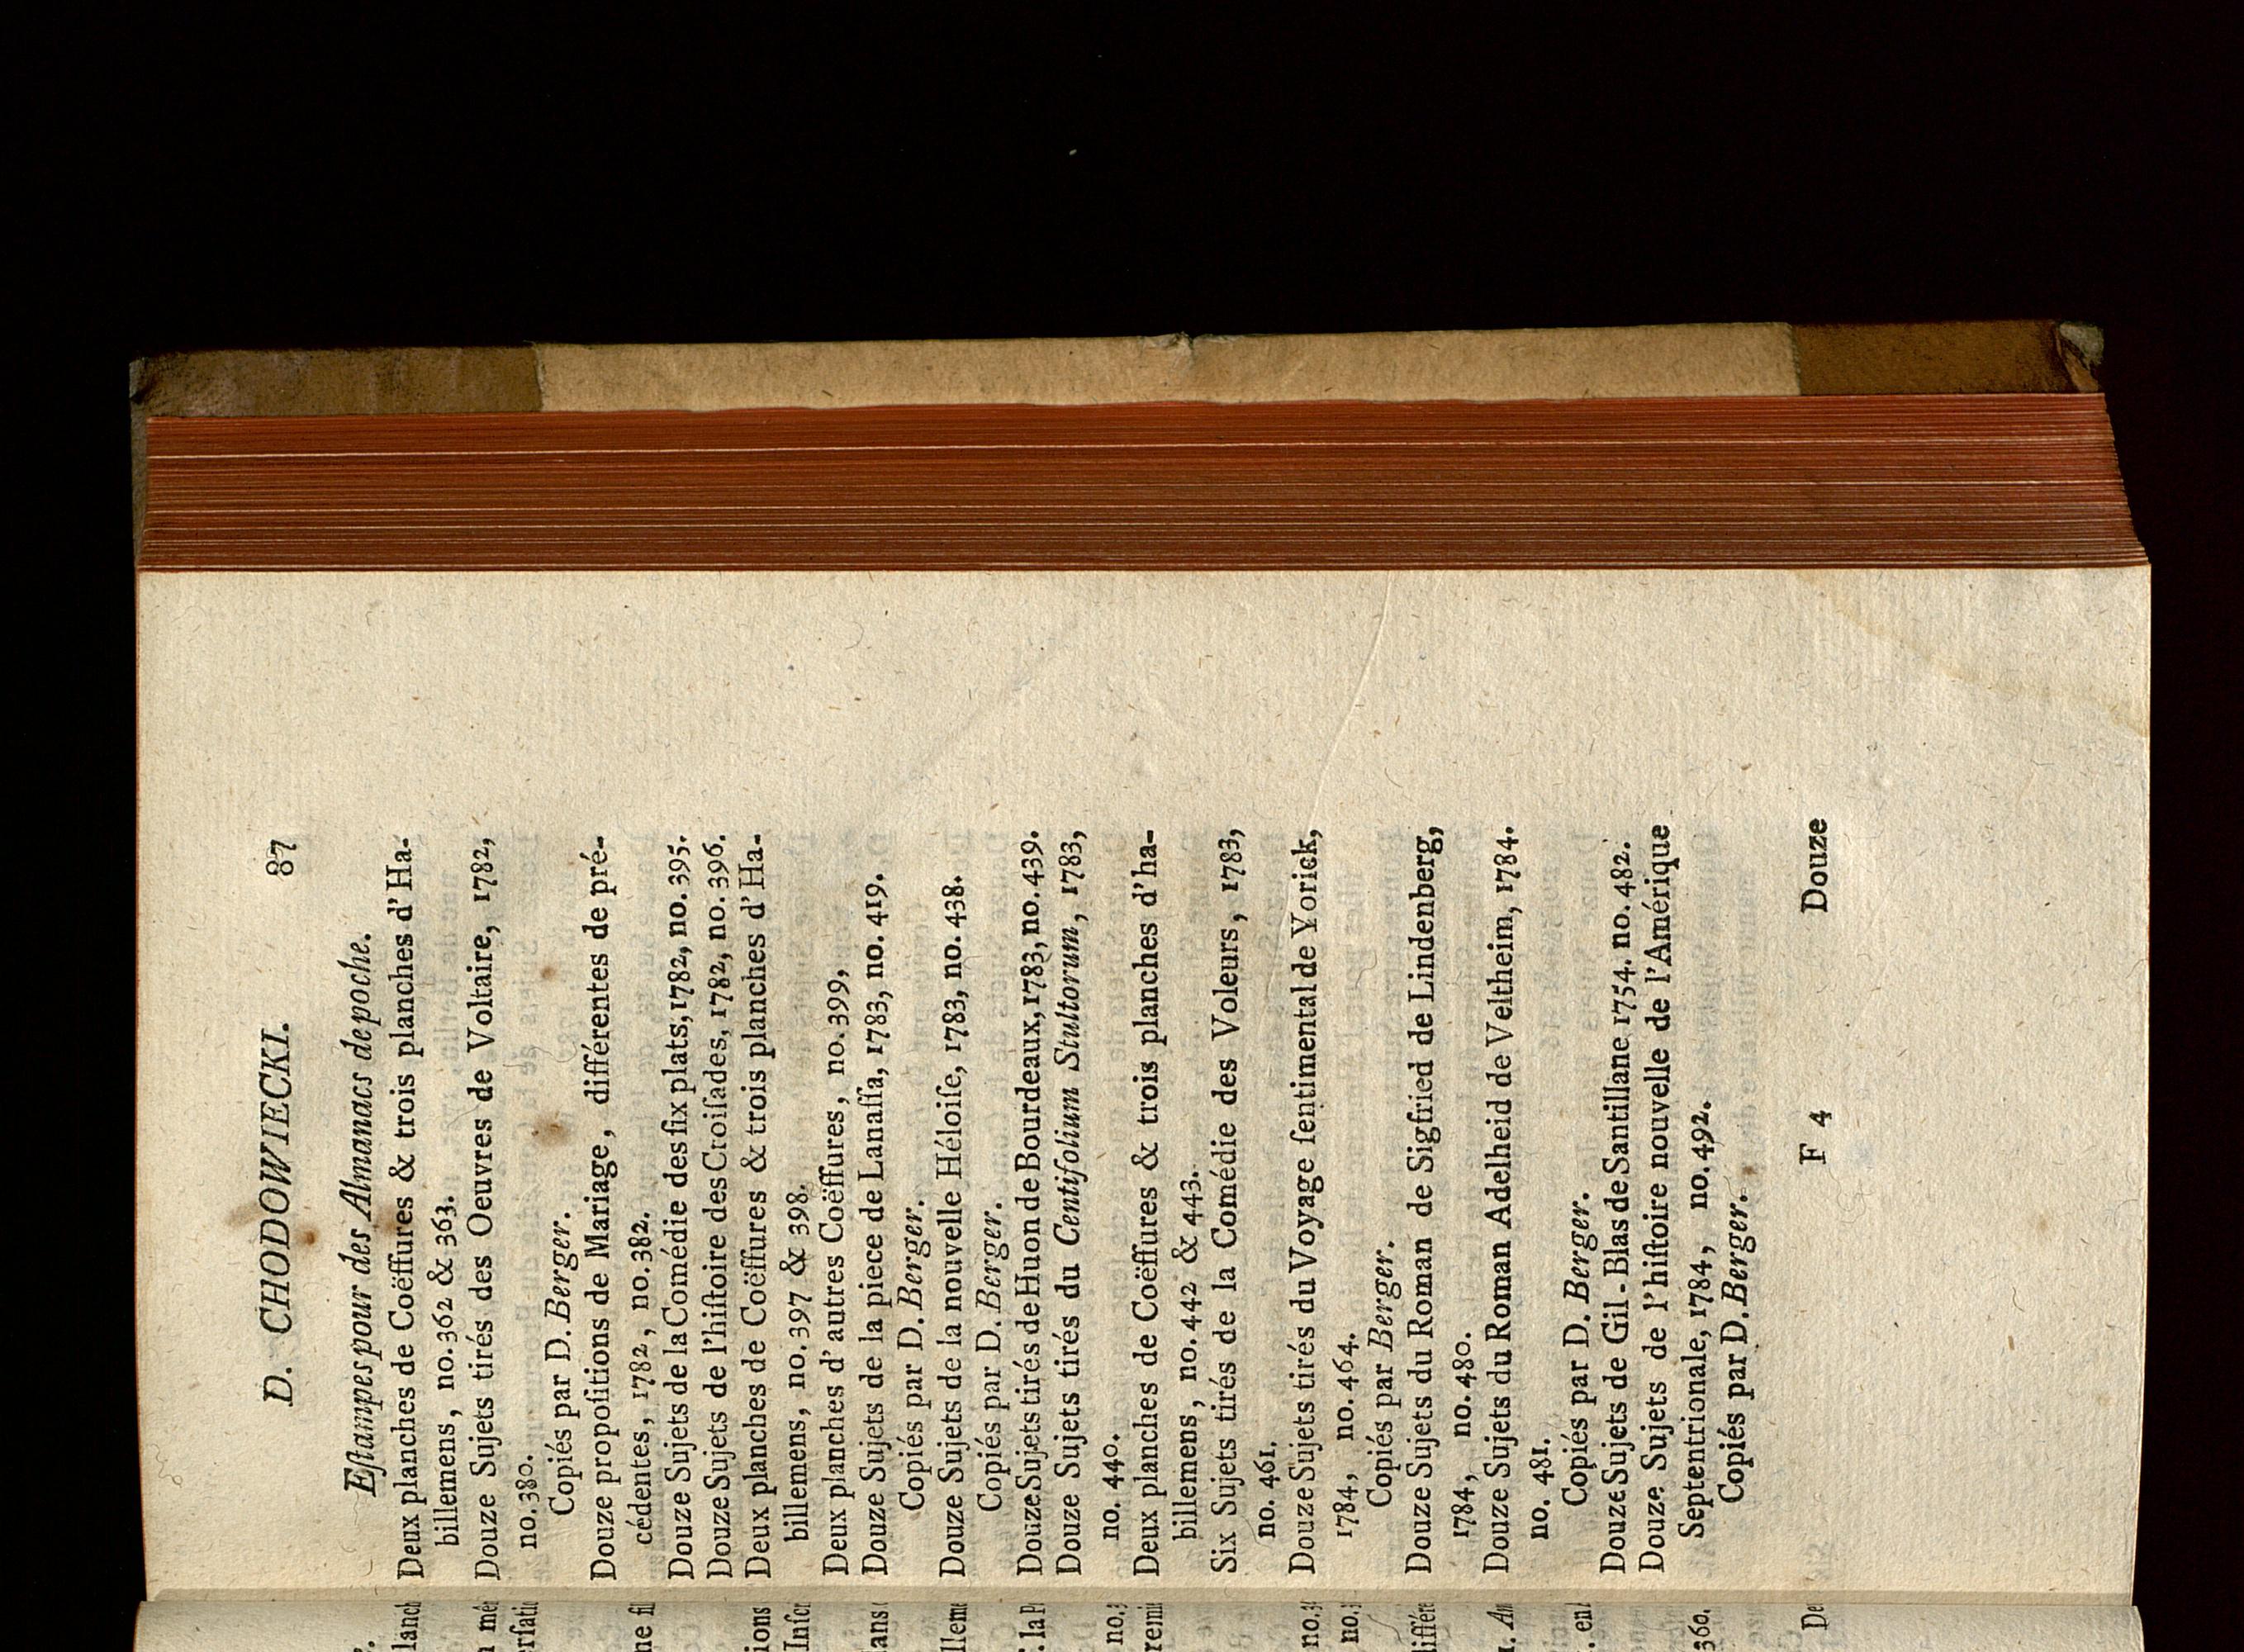 D. CHODOWIECKI. 87
Eſtampes pour des Almanacs de poche.
Deux planches de Coëffures & trois planches d'Ha-
billemens, no. 362 & 363.
Douze Sujets tirés des Oeuvres de Voltaire, 1782,
no. 380.
Copiés par D. Berger.
Douze propoſitions de Mariage, différentes de pré-
cédentes, 1782, no. 382.
Douze Sujets de la Comédie des ſix plats, 1782, no. 395.
Douze Sujets de l'hiſtoire des Croiſades, 1782, no. 396.
Deux planches de Coëffures & trois planches d'Ha-
billemens, no. 397 & 398.
Deux planches d'autres Coëffures, no. 399,
Douze Sujets de la piece de Lanaſſa, 1783, no. 419.
Copiés par D. Berger.
Douze Sujets de la nouvelle Héloiſe, 1783, no. 438.
Copiés par D. Berger.
Douze Sujets tirés de Huon de Bourdeaux, 1783, no. 439.
Douze Sujets tirés du Centifolium Stultorum, 1783,
no. 440.
Deux planches de Coëffures & trois planches d'ha-
billemens, no. 442 & 443.
Six Sujets tirés de la Comédie des Voleurs, 1783,
no. 461.
Douze Sujets tirés du Voyage ſentimental de Yorick,
1784, no. 464.
Copiés par Berger.
Douze Sujets du Roman de Sigfried de Lindenberg,
1784, no. 480.
Douze Sujets du Roman Adelheid de Veltheim, 1784.
no. 481.
Copiés par D. Berger.
Douze Sujets de Gil-Blas de Santillane 1754. no. 482.
Douze Sujets de l'hiſtoire nouvelle de l'Amérique
Septentrionale, 1784, no. 492.
Copiés par D. Berger.
F 4 Douze